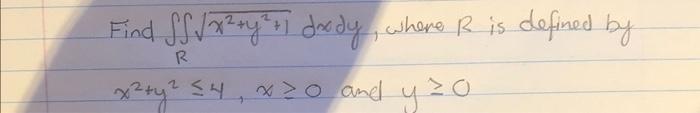 Find ∬√x²+y²+1 dxdy, where R is defined by
R
x²+y² ≤ 4, x ≥ 0 and y ≥ 0